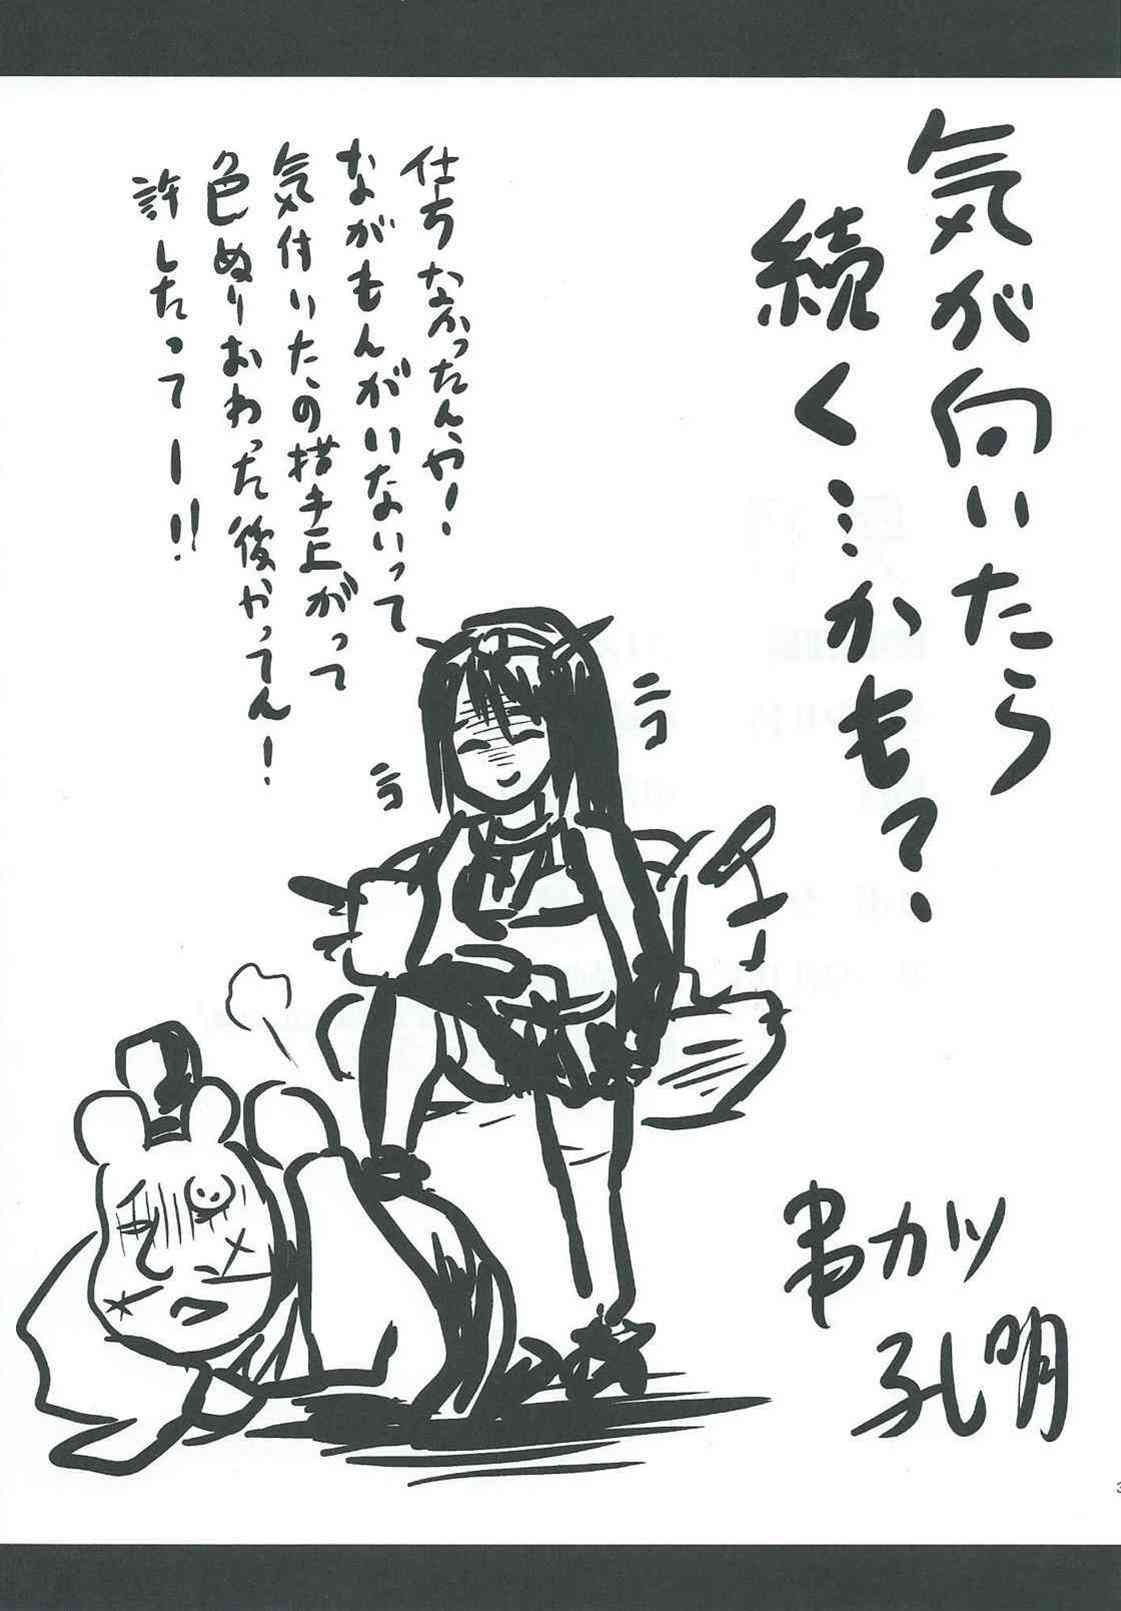 気が向いたら
続く…かも？
仕方なかったんや！
ながもんがいないって
気付いたの描き上がって
色ぬりおわった後やってん！
許したってー!!
ニコ
ニコ
串カツ
孔明